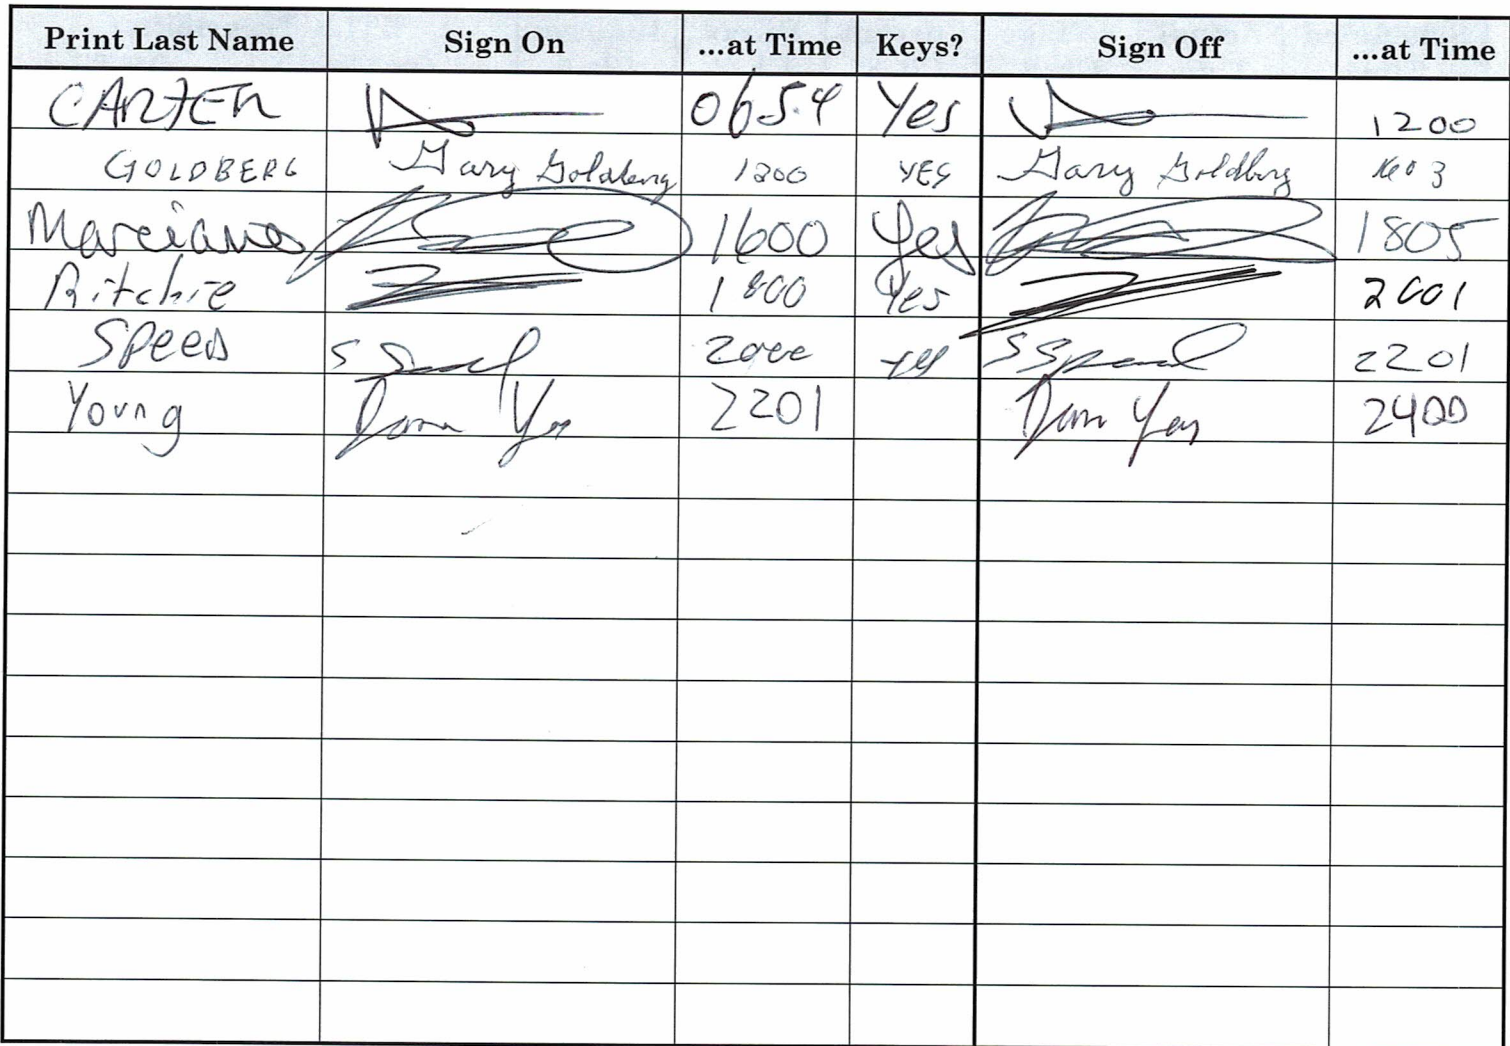 Print Last Name Sign On ...at Time Keys? Sign Off ...at Time
CARTER 0654 Yes 1200
GOLDBERG Gary Goldberg 1200 YES Gary Goldberg 1603
Marciano 1600 Yes 1805
Ritchie 1800 Yes 2001
Speed S Speed 2000 yes S Speed 2201
Young 2201 2400